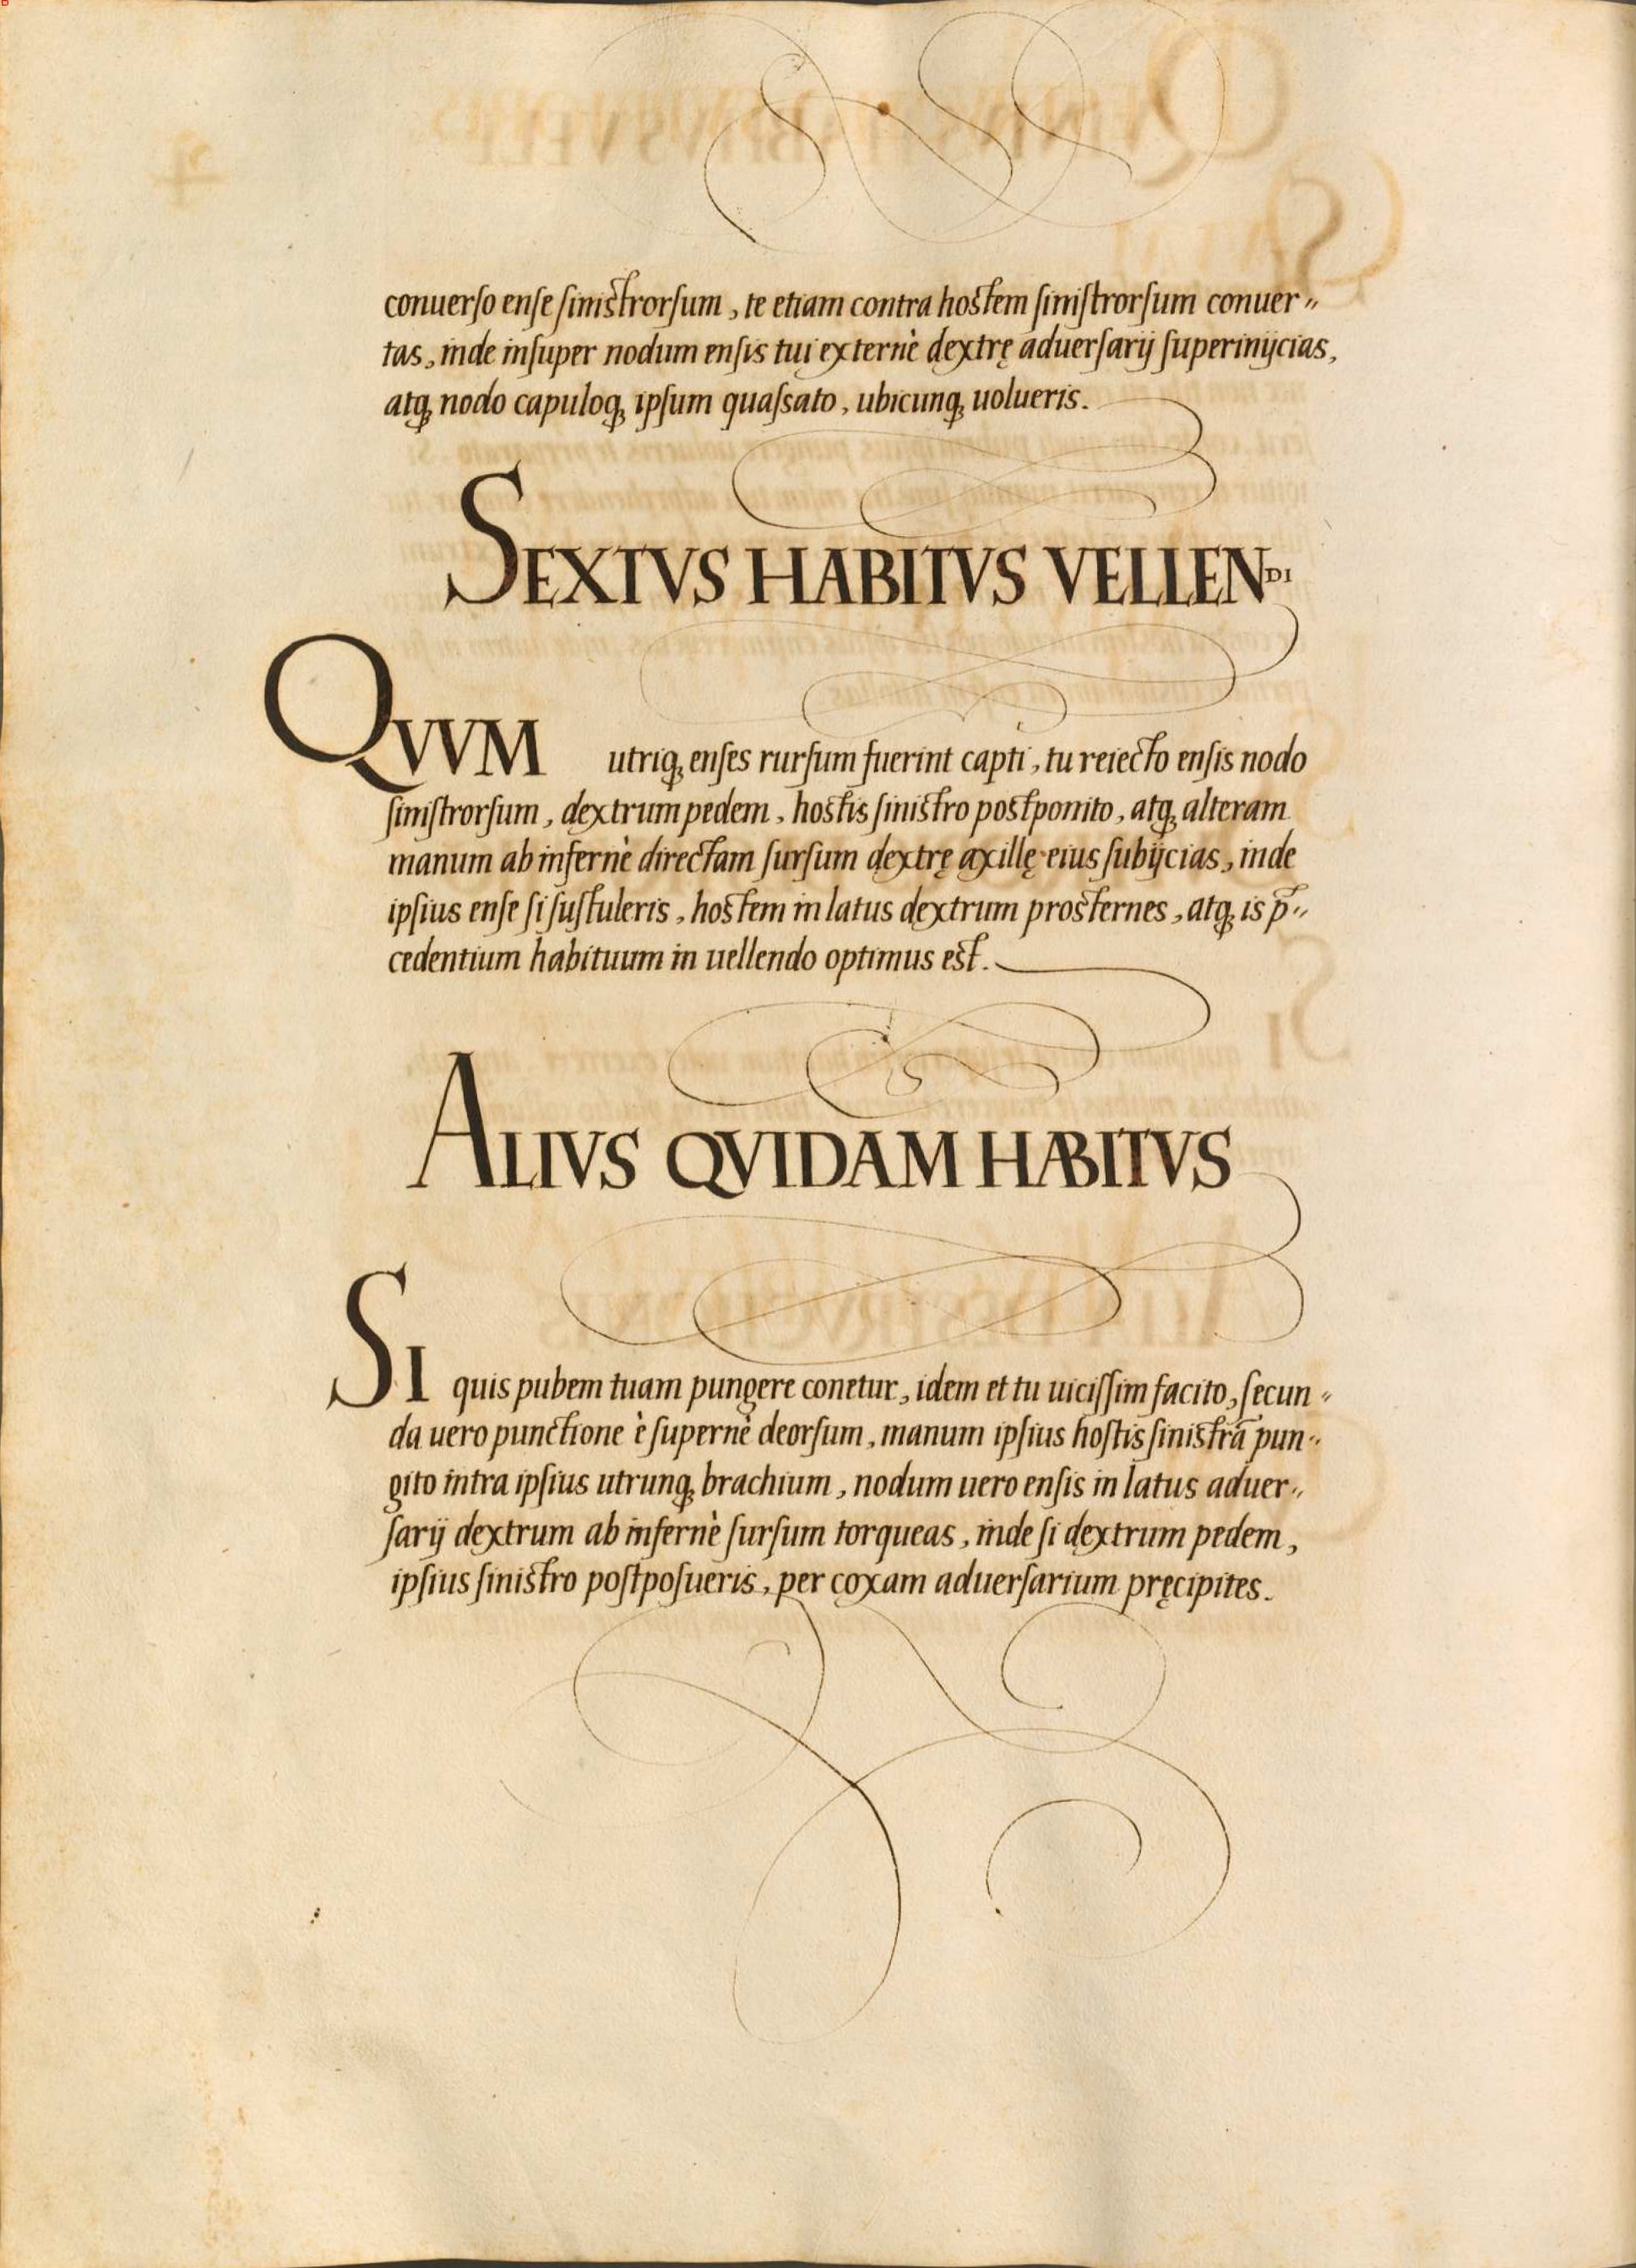 conuerſo enſe ſiniſtrorſum, te etiam contra hoſtem ſiniſtrorſum conuer„
tas, inde inſuper nodum enſis tui externè dextrę aduerſarij ſuperinijcias,
atq; nodo capuloq; ipſum quaſsato, ubicunq; uolueris.
SEXTVS HABITVS VELLENDI
QVVM utriq; enſes rurſum fuerint capti, tu reiecto enſis nodo
ſiniſtrorſum, dextrum pedem, hoſtis ſiniſtro poſtponito, atq; alteram
manum ab infernè directam ſurſum dextrę axillę eius ſubijcias, inde
ipſius enſe ſi ſuſtuleris, hoſtem in latus dextrum proſternes, atq; is p̄„
cedentium habituum in uellendo optimus eſt.
ALIVS QVIDAM HABITVS
SI quis pubem tuam pungere conetur, idem et tu uiciſſim facito, ſecun„
da uero punctione è ſupernè deorſum, manum ipſius hoſtis ſiniſtrā pun„
gito intra ipſius utrunq; brachium, nodum uero enſis in latus aduer„
ſarij dextrum ab infernè ſurſum torqueas, inde ſi dextrum pedem,
ipſius ſiniſtro poſtpoſueris, per coxam aduerſarium pręcipites.